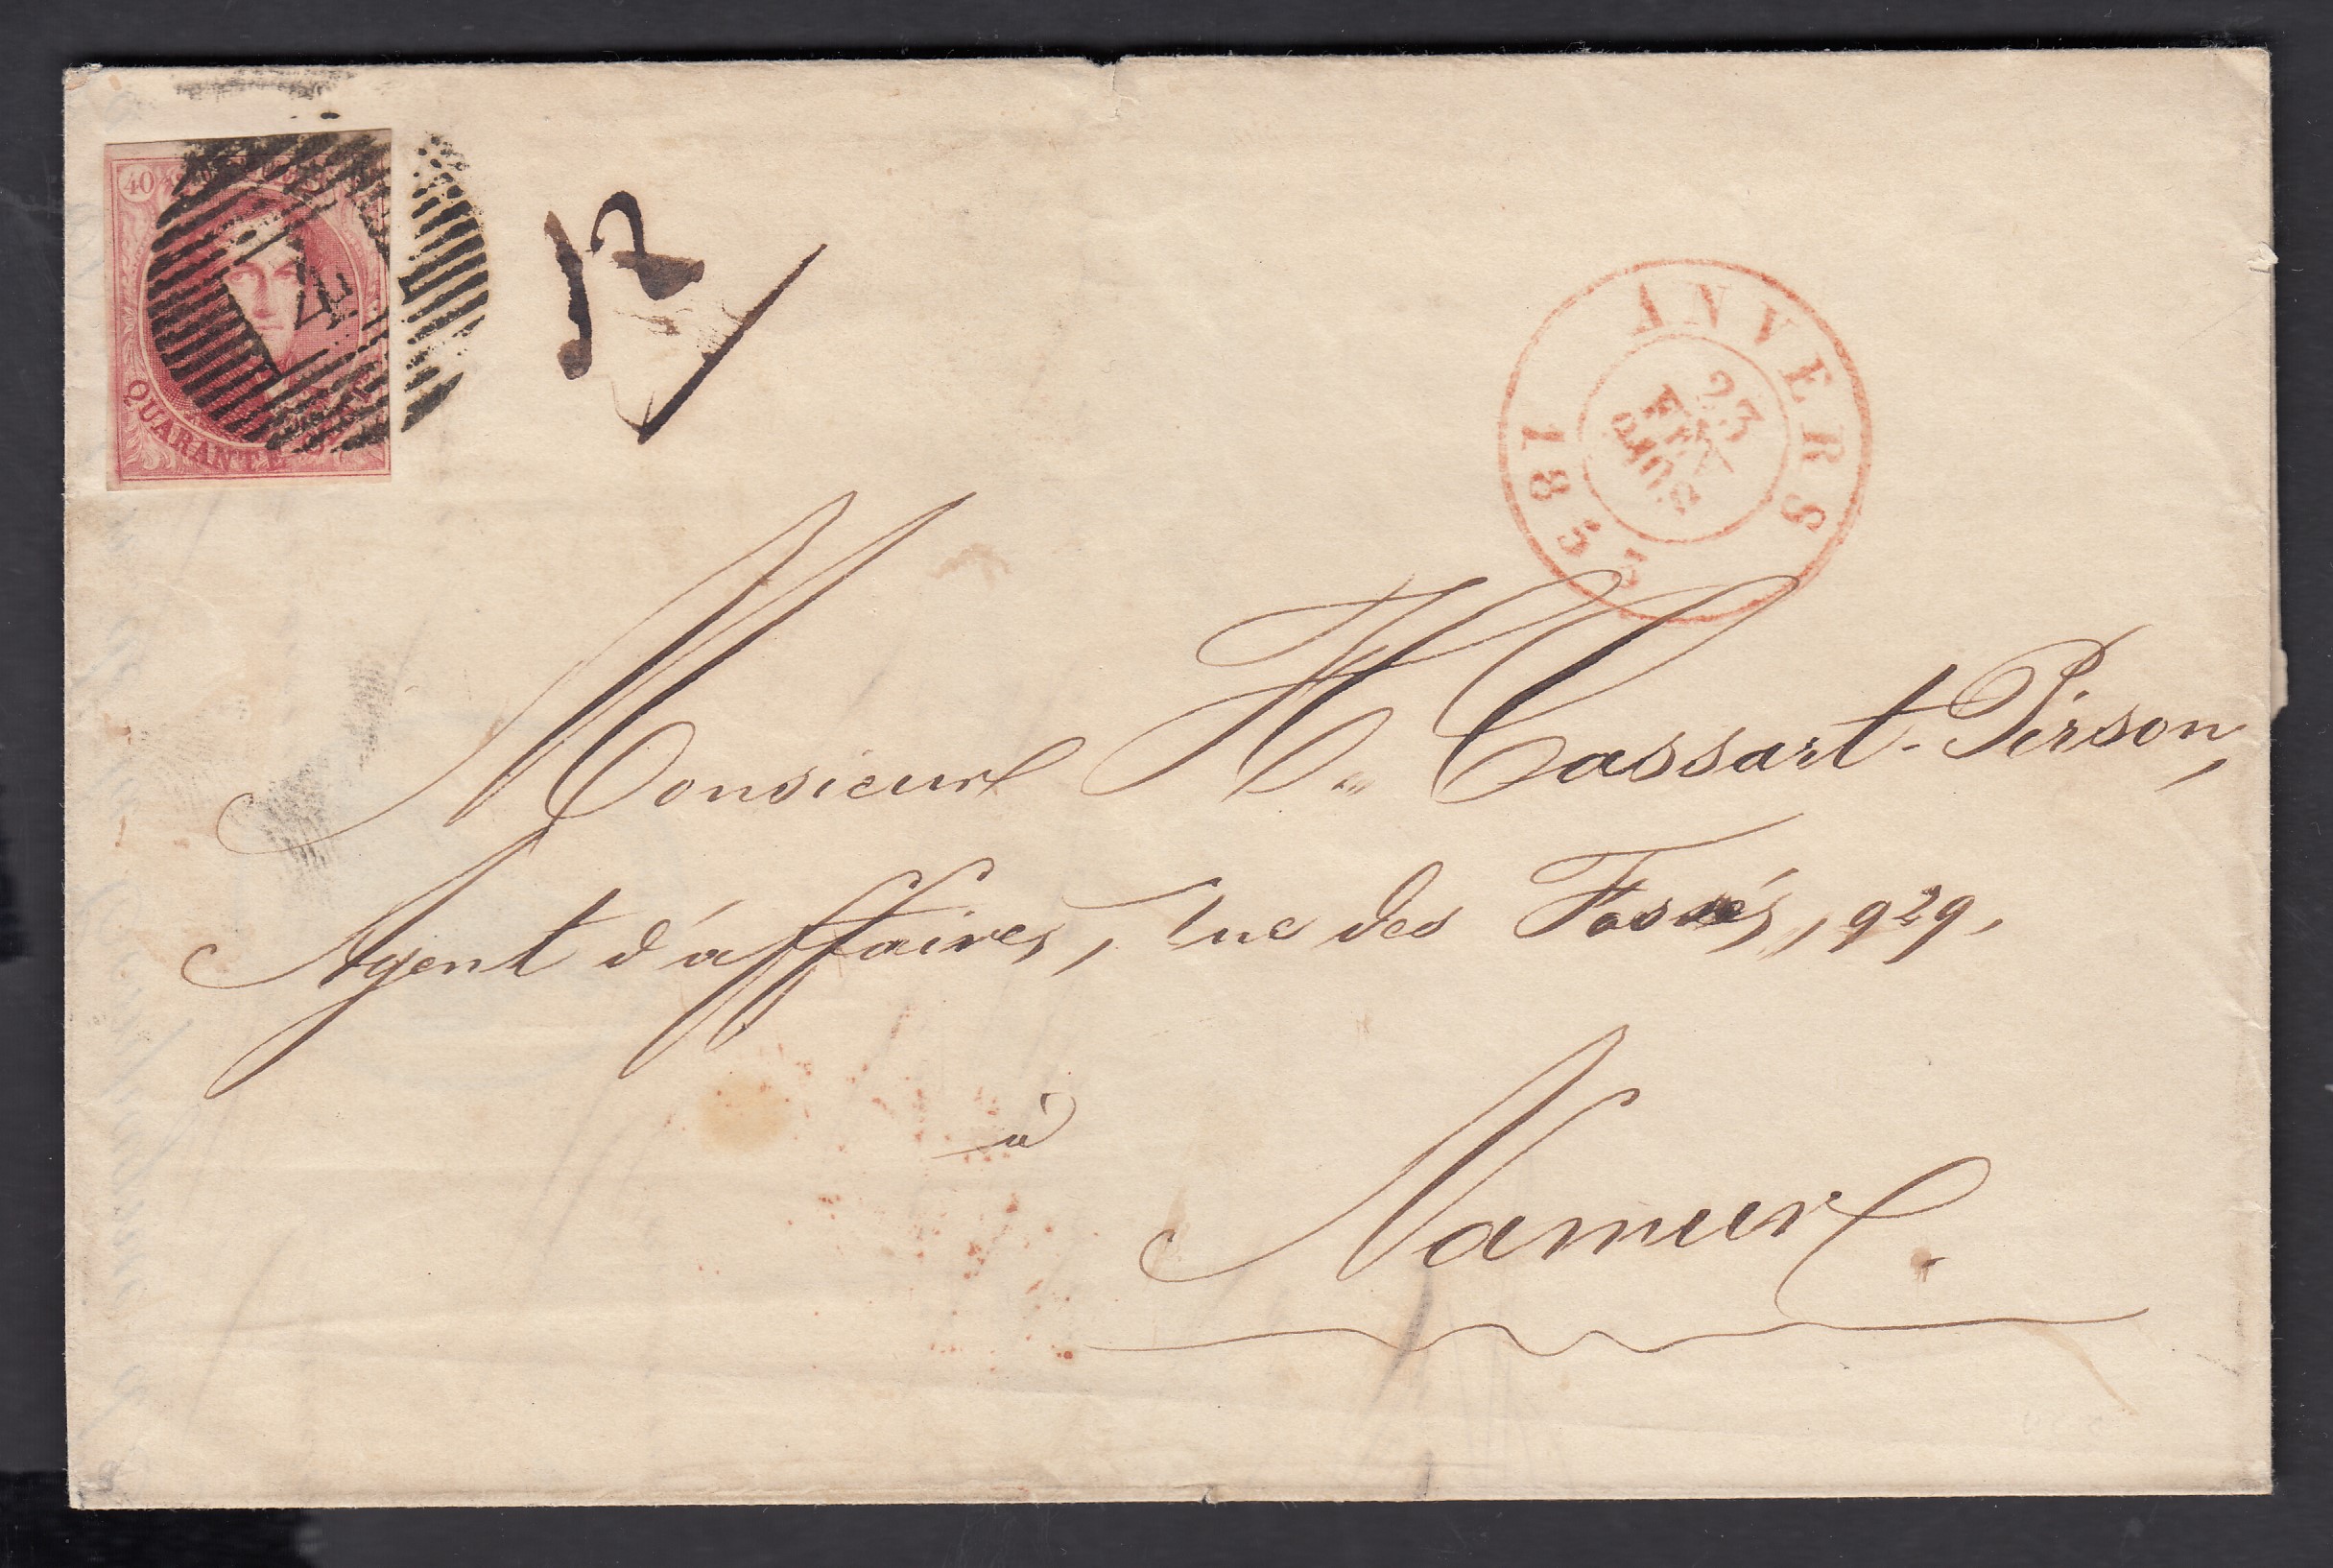 40
4
QUARANTE
12
ANVERS
23
FEV
1853
Monsieur H. Cassart-Pirson,
Agent d'affaires, rue des Fossés, 929.
à
Namur.